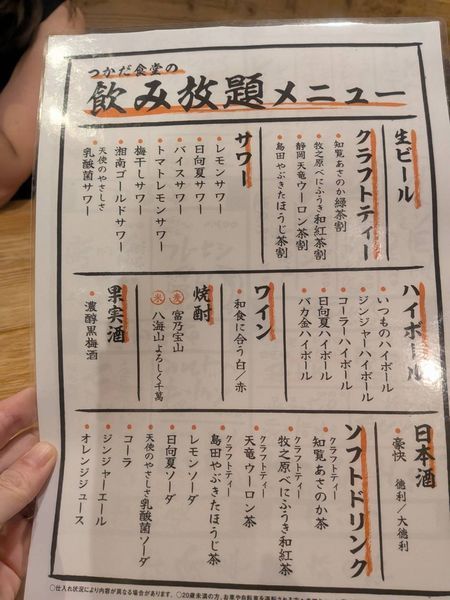 つかだ食堂の
飲み放題メニュー
生ビール
クラフトティー
知覧あさのか緑茶割
牧之原べにふうき和紅茶割
静岡天竜ウーロン茶割
島田やぶきたほうじ茶割
サワー
レモンサワー
日向夏サワー
バイスサワー
トマトレモンサワー
梅干しサワー
湘南ゴールドサワー
天使のやさしさ
乳酸菌サワー
ハイボール
いつものハイボール
ジンジャーハイボール
コーラーハイボール
日向夏ハイボール
バカ金ハイボール
ワイン
和食に合う白/赤
焼酎
麦 富乃宝山
米 八海山よろしく千萬
果実酒
濃醇黒梅酒
日本酒
豪快 徳利/大徳利
ソフトドリンク
クラフトティー
知覧あさのか茶
クラフトティー
牧之原べにふうき和紅茶
クラフトティー
天竜ウーロン茶
クラフトティー
島田やぶきたほうじ茶
レモンソーダ
日向夏ソーダ
天使のやさしさ乳酸菌ソーダ
コーラ
ジンジャーエール
オレンジジュース
○仕入れ状況により内容が異なる場合があります。○20歳未満の方、お車や自転車を運転される方